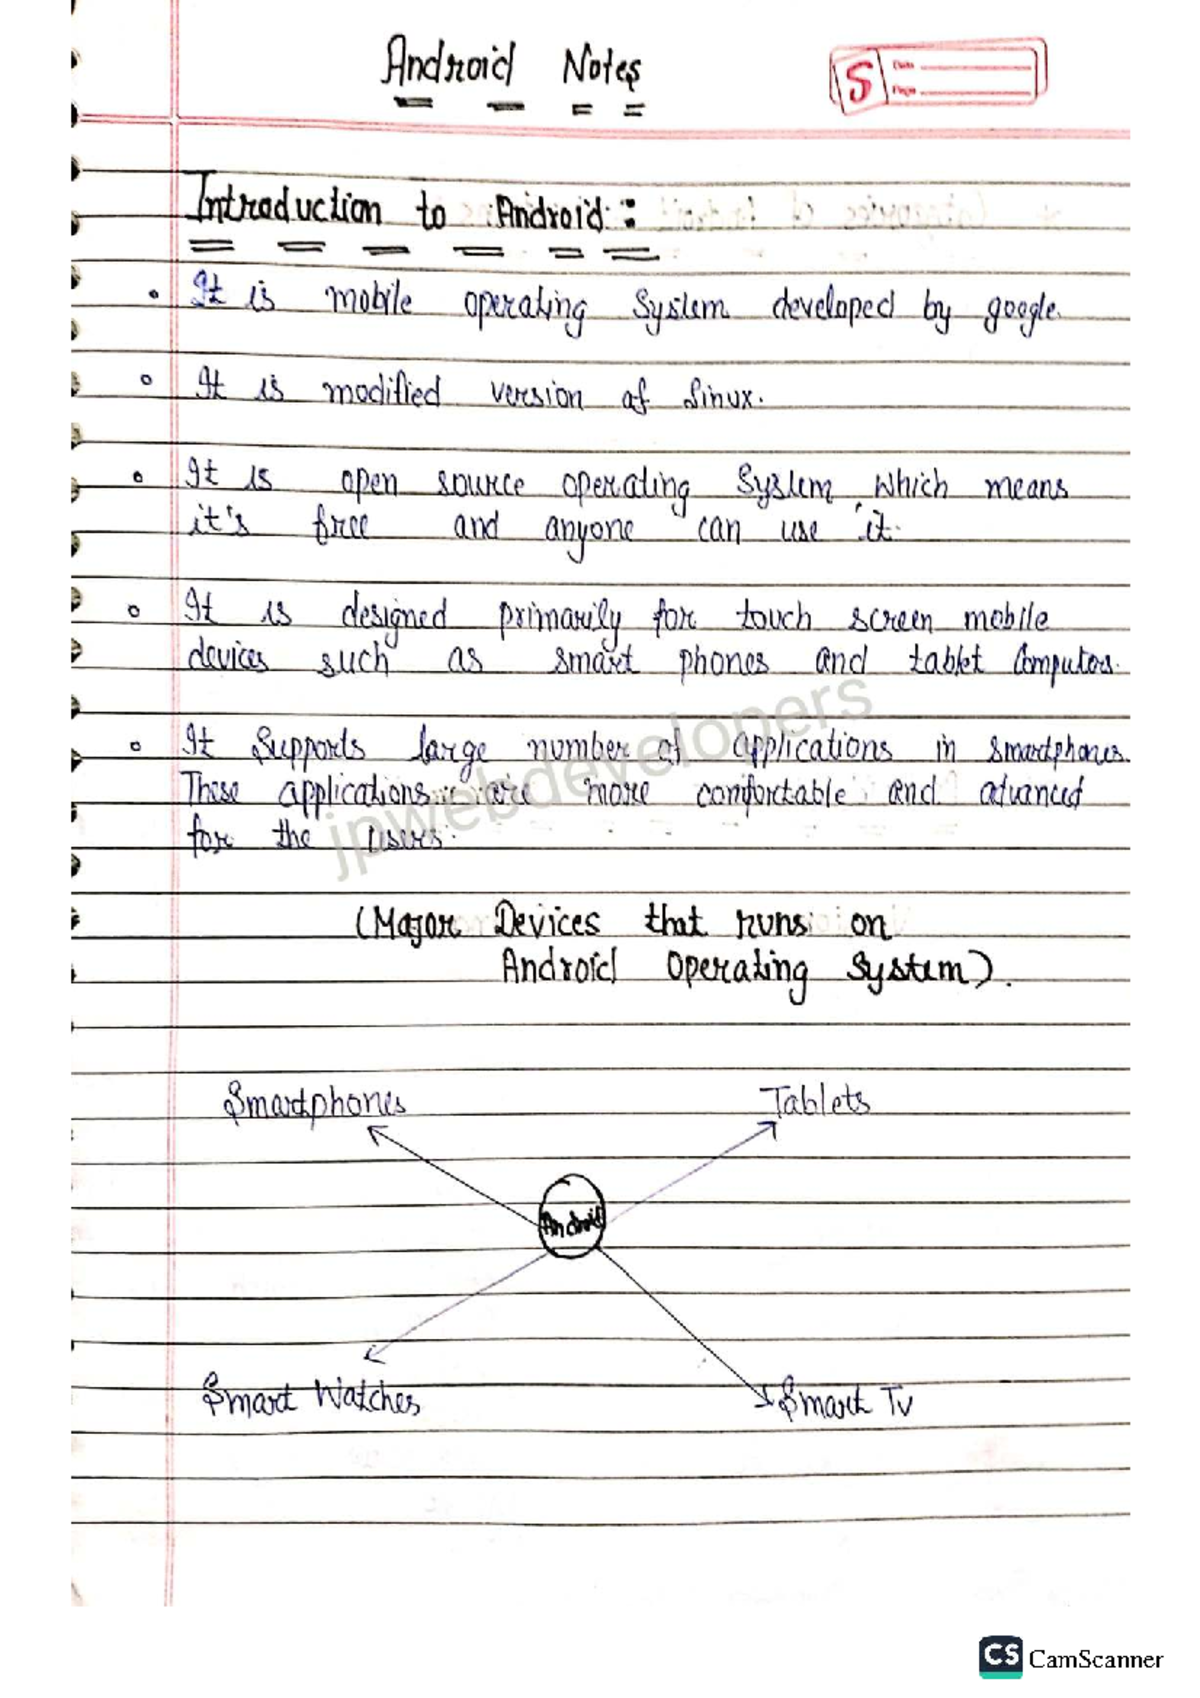 Android Notes
S
Date
Page
Introduction to Android :
It is mobile operating system developed by google.
It is modified version of Linux.
It is open source operating system which means
it's free and anyone can use it.
It is designed primarily for touch screen mobile
devices such as smart phones and tablet computers.
It Supports large number of applications in smartphones.
These applications are more comfortable and advanced
for the users.
jpwebdevelopers
(Major Devices that runs on
Android Operating System).
Smartphones
Tablets
Android
Smart Watches
Smart Tv
CS CamScanner